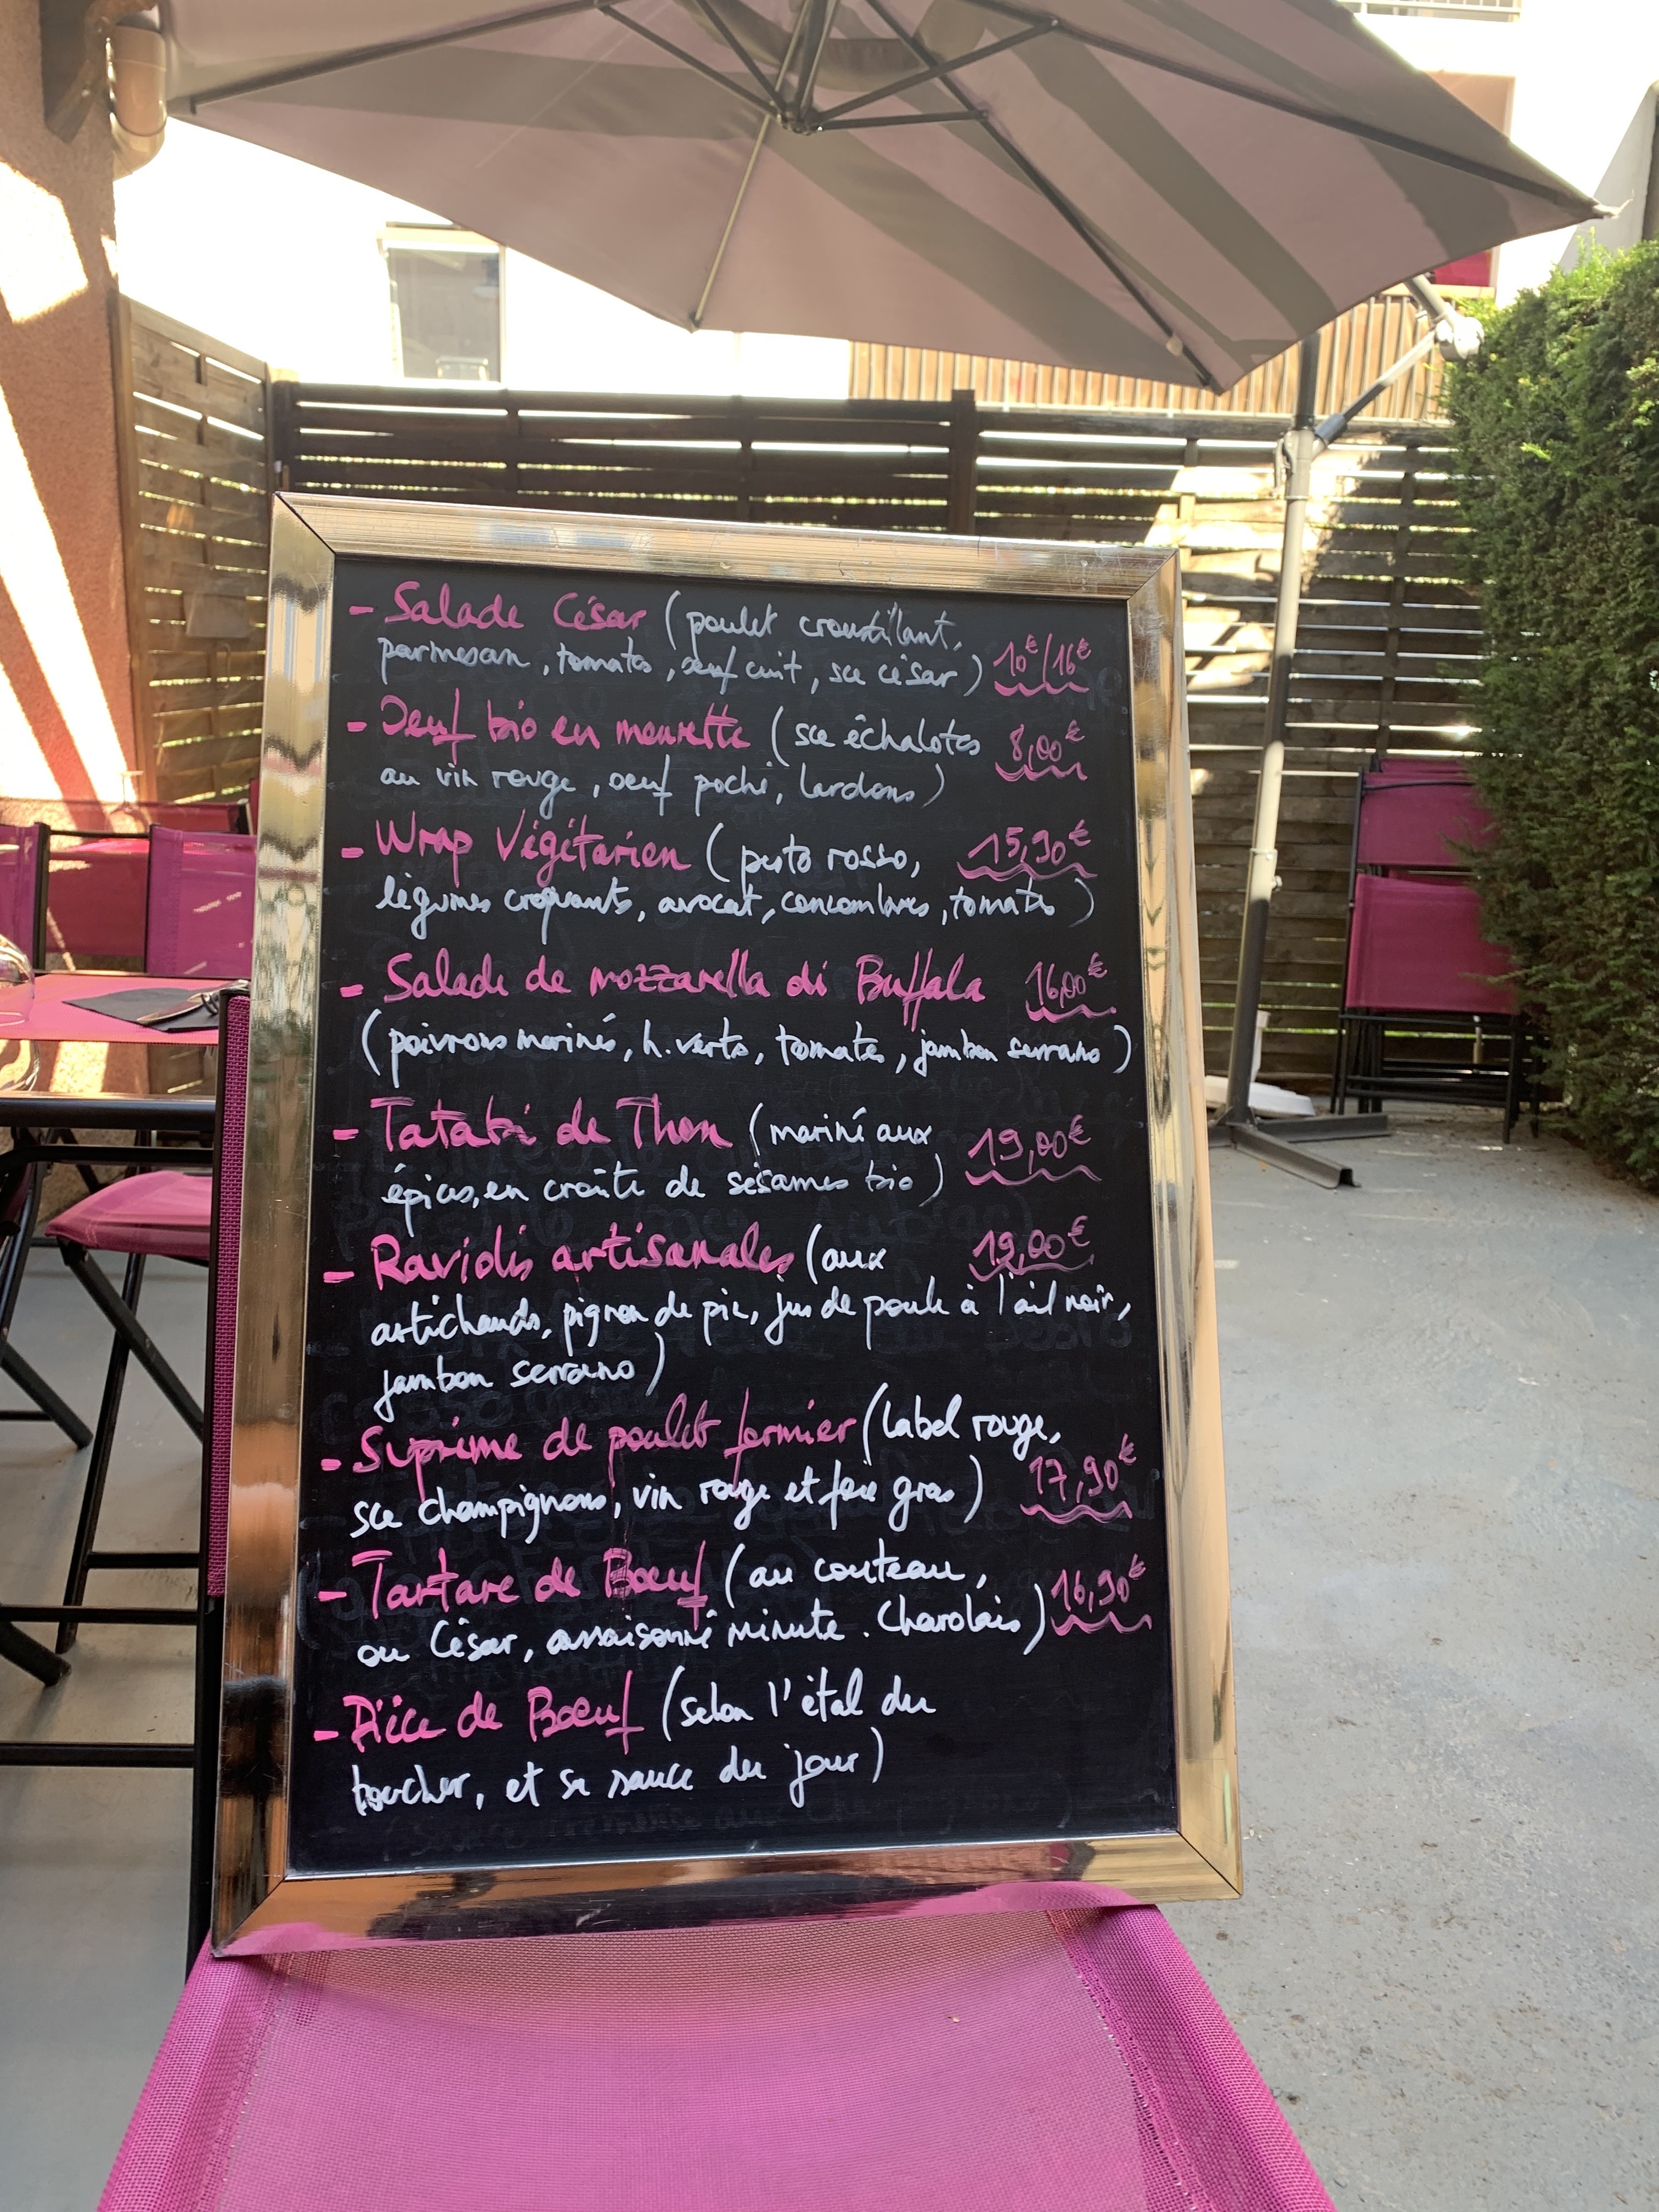 - Salade César (poulet croustillant,
parmesan, tomates, oeuf cuit, sce césar) 10€/16€
- Oeuf bio en meurette (sce échalotes 8,00€
au vin rouge, oeuf poché, lardons)
- Wrap Végétarien (pesto rosso, 15,90€
légumes croquants, avocat, concombres, tomates)
- Salade de mozzarella di Buffala 16,00€
(poivrons marinés, h. verts, tomates, jambon serrano)
- Tataki de Thon (mariné aux 19,00€
épices, en croûte de sésames bio)
- Raviolis artisanales (aux 19,00€
artichauds, pignon de pin, jus de poule à l'ail noir,
jambon serrano)
- Suprême de poulet fermier (label rouge,
sce champignons, vin rouge et foie gras) 17,90€
- Tartare de Boeuf (au couteau, 16,90€
ou César, assaisonné minute. Charolais)
- Pièce de Boeuf (selon l'étal du
boucher, et sa sauce du jour)